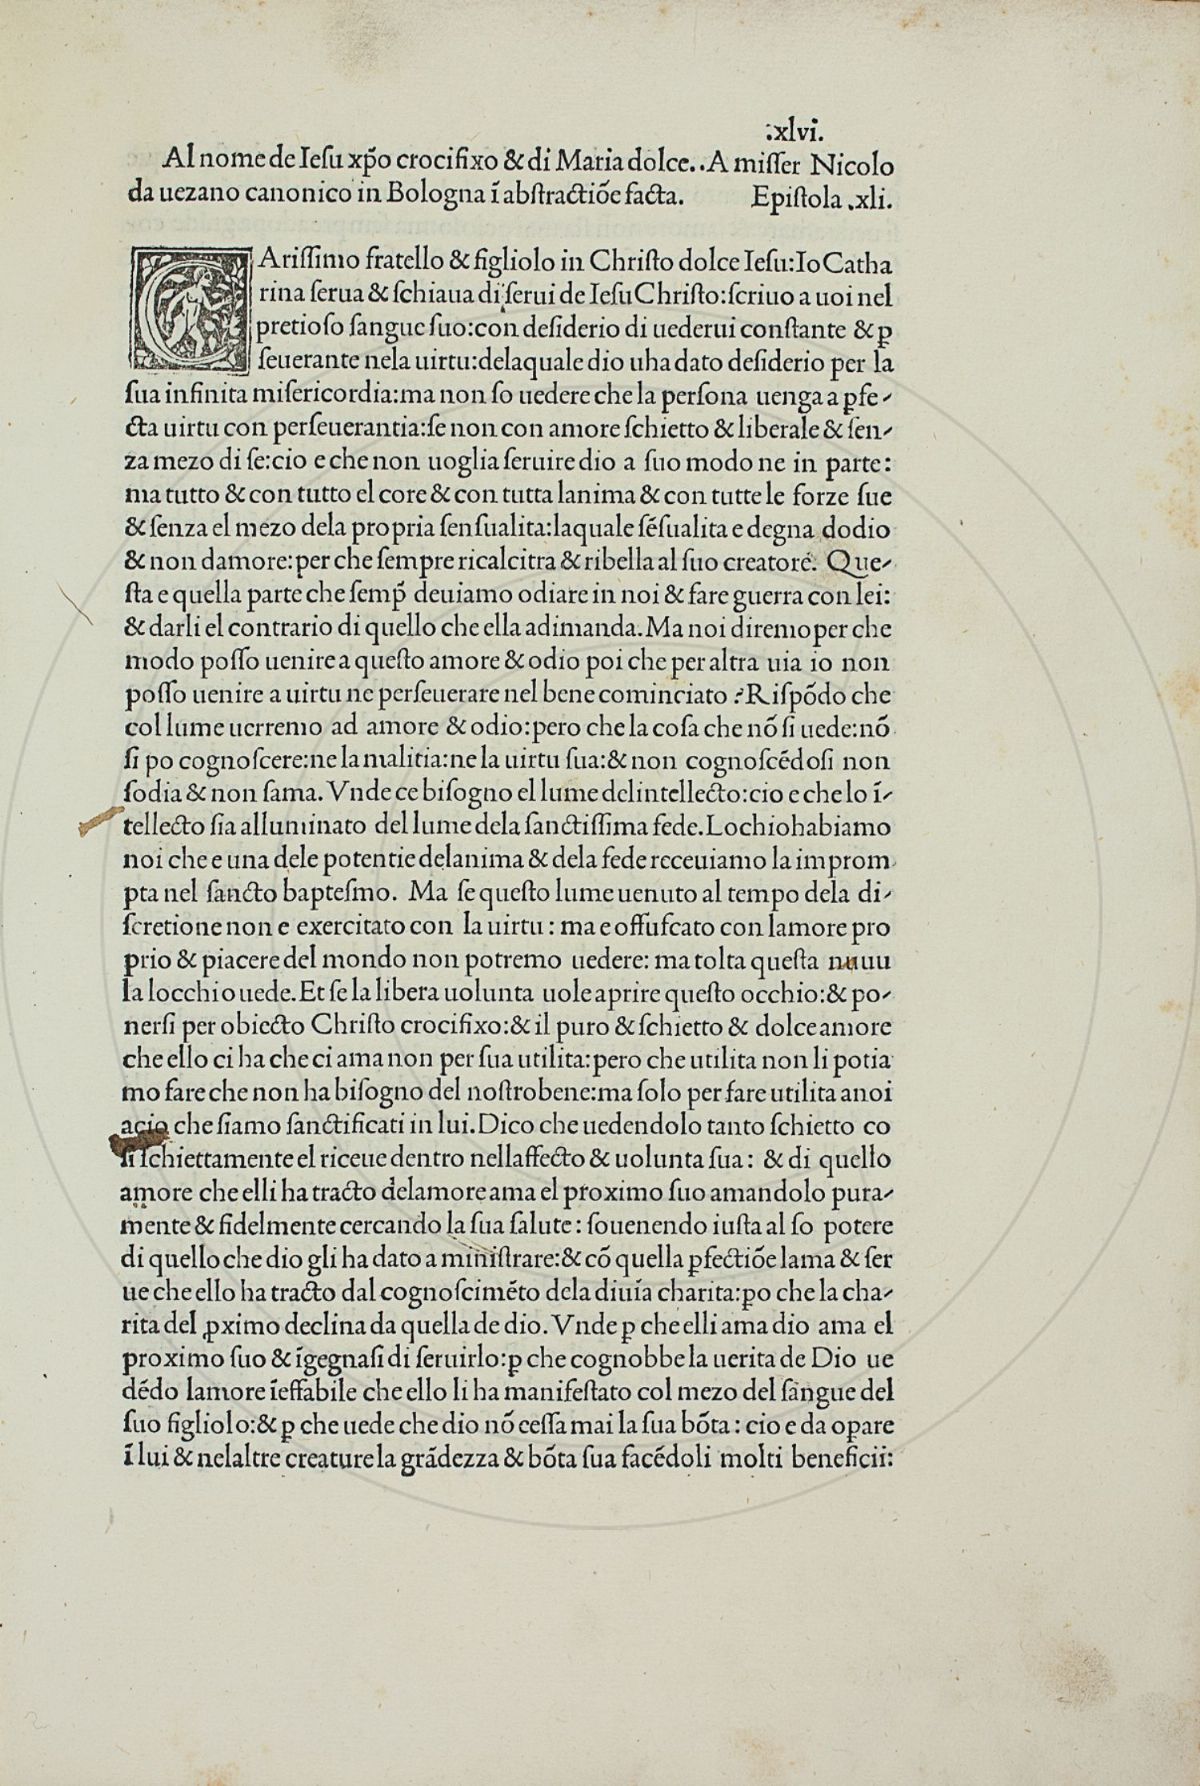 :xlvi.
Al nome de Ieſu xp̄o crocifixo & di Maria dolce..A miſſer Nicolo
da uezano canonico in Bologna ī abſtractiōe facta. Epiſtola .xli.
CAriſſimo fratello & figliolo in Chriſto dolce Ieſu:Io Catha
rina ſerua & ſchiaua di ſerui de Ieſu Chriſto:ſcriuo a uoi nel
pretioſo ſangue ſuo:con deſiderio di uederui conſtante & ꝑ
ſeuerante nela uirtu:delaquale dio uha dato deſiderio per la
ſua infinita miſericordia:ma non ſo uedere che la perſona uenga a ꝑfe-
cta uirtu con perſeuerantia:ſe non con amore ſchietto & liberale & ſen-
za mezo di ſe:cio e che non uoglia ſeruire dio a ſuo modo ne in parte:
ma tutto & con tutto el core & con tutta lanima & con tutte le forze ſue
& ſenza el mezo dela propria ſenſualita:laquale ſēſualita e degna dodio
& non damore:per che ſempre ricalcitra & ribella al ſuo creatore. Que-
ſta e quella parte che ſemp̄ deuiamo odiare in noi & fare guerra con lei:
& darli el contrario di quello che ella adimanda.Ma noi diremo per che
modo poſſo uenire a queſto amore & odio poi che per altra uia io non
poſſo uenire a uirtu ne perſeuerare nel bene cominciato ?Riſpōdo che
col lume uerremo ad amore & odio:pero che la coſa che nō ſi uede:nō
ſi po cognoſcere:ne la malitia:ne la uirtu ſua:& non cognoſcēdoſi non
ſodia & non ſama. Vnde ce biſogno el lume delintellecto:cio e che lo ī-
tellecto ſia alluminato del lume dela ſanctiſſima fede.Lochio habiamo
noi che e una dele potentie delanima & dela fede receuiamo la improm
pta nel ſancto bapteſmo. Ma ſe queſto lume uenuto al tempo dela di-
ſcretione non e exercitato con la uirtu : ma e offuſcato con lamore pro
prio & piacere del mondo non potremo uedere: ma tolta queſta nuuu
la locchio uede.Et ſe la libera uolunta uole aprire queſto occhio:& po-
nerſi per obiecto Chriſto crocifixo:& il puro & ſchietto & dolce amore
che ello ci ha che ci ama non per ſua utilita:pero che utilita non li potia
mo fare che non ha biſogno del noſtro bene:ma ſolo per fare utilita anoi
acio che ſiamo ſanctificati in lui.Dico che uedendolo tanto ſchietto co
ſi ſchiettamente el riceue dentro nellaffecto & uolunta ſua: & di quello
amore che elli ha tracto delamore ama el proximo ſuo amandolo pura-
mente & fidelmente cercando la ſua ſalute: ſouenendo iuſta al ſo potere
di quello che dio gli ha dato a miniſtrare:& cō quella ꝑfectiōe lama & ſer
ue che ello ha tracto dal cognoſcimēto dela diuīa charita:ꝑo che la cha-
rita del ꝓximo declina da quella de dio. Vnde ꝑ che elli ama dio ama el
proximo ſuo & īgegnaſi di ſeruirlo:ꝑ che cognobbe la uerita de Dio ue
dēdo lamore īeffabile che ello li ha manifeſtato col mezo del ſangue del
ſuo figliolo:& ꝑ che uede che dio nō ceſſa mai la ſua bōta : cio e da opare
ī lui & nelaltre creature la grādezza & bōta ſua facēdoli molti beneficii: